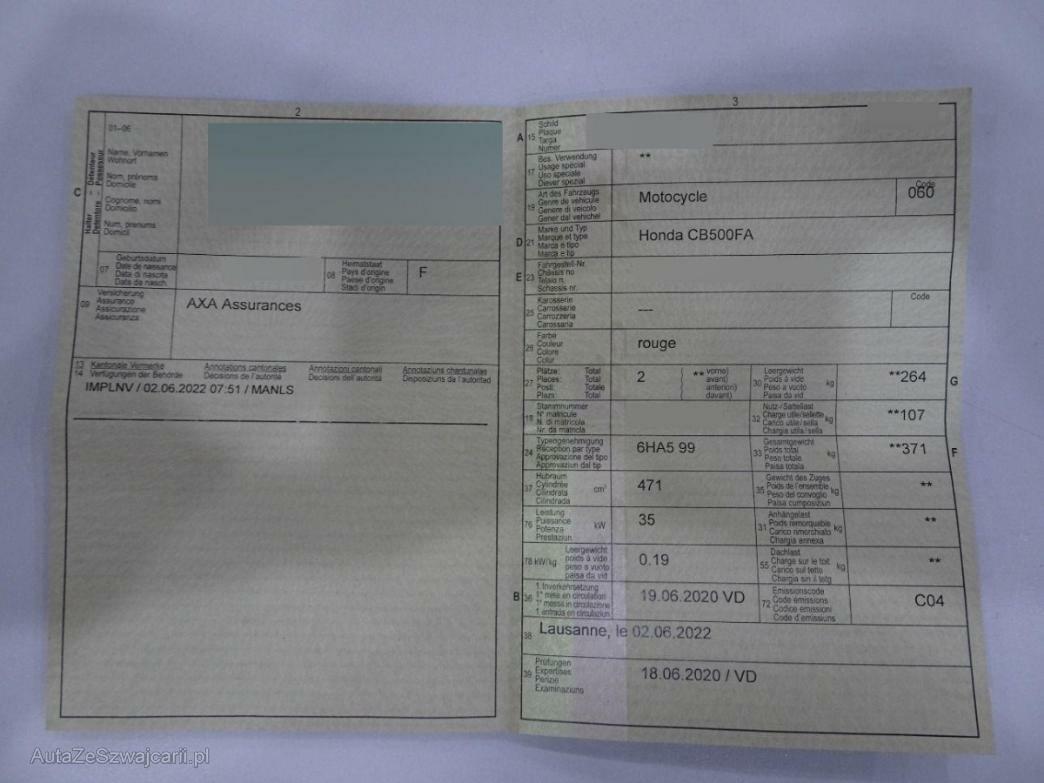 2
01–06
Halter
Détenteur
Detentore
Possessur
C
Name, Vornamen
Wohnort
Nom, prénoms
Domicile
Cognome, nomi
Domicilio
Num, prenums
Domicil
07
Geburtsdatum
Date de naissance
Data di nascita
Data da nasch.
08
Heimatstaat
Pays d'origine
Paese d'origine
Stadi d'origin
F
09
Versicherung
Assurance
Assicurazione
Assicuranza
AXA Assurances
13
14
Kantonale Vermerke
Verfügungen der Behörde
Annotations cantonales
Décisions de l'autorité
Annotazioni cantonali
Decisioni dell'autorità
Annotaziuns chantunalas
Disposiziuns da l'autoritad
IMPLNV / 02.06.2022 07:51 / MANLS
3
A 15
Schild
Plaque
Targa
Numer
17
Bes. Verwendung
Usage spécial
Uso speciale
Diever spezial
**
19
Art des Fahrzeugs
Genre de véhicule
Genere di veicolo
Gener dal vehichel
Motocycle
Code
060
D 21
Marke und Typ
Marque et type
Marca e tipo
Marca e tip
Honda CB500FA
E 23
Fahrgestell-Nr.
Châssis no
Telaio n.
Schassis nr.
25
Karosserie
Carrosserie
Carrozzeria
Carossaria
---
Code
26
Farbe
Couleur
Colore
Colur
rouge
27
Plätze: Total
Places: Total
Posti: Totale
Plazs: Total
2
( ** vorne)
avant)
anteriori)
davant)
30
Leergewicht
Poids à vide
Peso a vuoto
Paisa da vid
kg
**264
G
18
Stammnummer
N° matricule
N. di matricola
Nr. da matricla
32
Nutz-/Sattellast
Charge utile/sellette
Carico utile/sella
Chargia utila/sella
kg
**107
24
Typengenehmigung
Réception par type
Approvazione del tipo
Approvaziun dal tip
6HA5 99
33
Gesamtgewicht
Poids total
Peso totale
Paisa totala
kg
**371
F
37
Hubraum
Cylindrée
Cilindrata
Cilindrada
cm³
471
35
Gewicht des Zuges
Poids de l'ensemble
Peso del convoglio
Paisa cumposiziun
kg
**
76
Leistung
Puissance
Potenza
Prestaziun
kW
35
31
Anhängelast
Poids remorquable
Carico rimorchiato
Chargia annexa
kg
**
78 kW/kg
Leergewicht
poids à vide
peso a vuoto
paisa da vid
0.19
55
Dachlast
Charge sur le toit
Carico sul tetto
Chargia sin il tetg
kg
**
B 36
1. Inverkehrsetzung
1re mise en circulation
1a messa in circolazione
1. entrada en circulaziun
19.06.2020 VD
72
Emissionscode
Code émissions
Codice emissioni
Code d'emissiuns
C04
38
Lausanne, le 02.06.2022
39
Prüfungen
Expertises
Perizie
Examinaziuns
18.06.2020 / VD
AutaZeSzwajcarii.pl